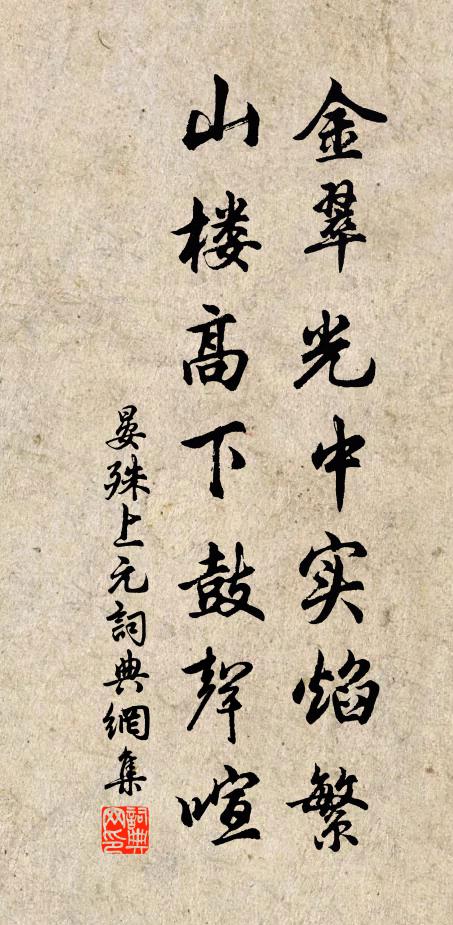 金翠光中实焰繁
山楼高下鼓聲喧
晏殊上元詞典網集
詞典网印